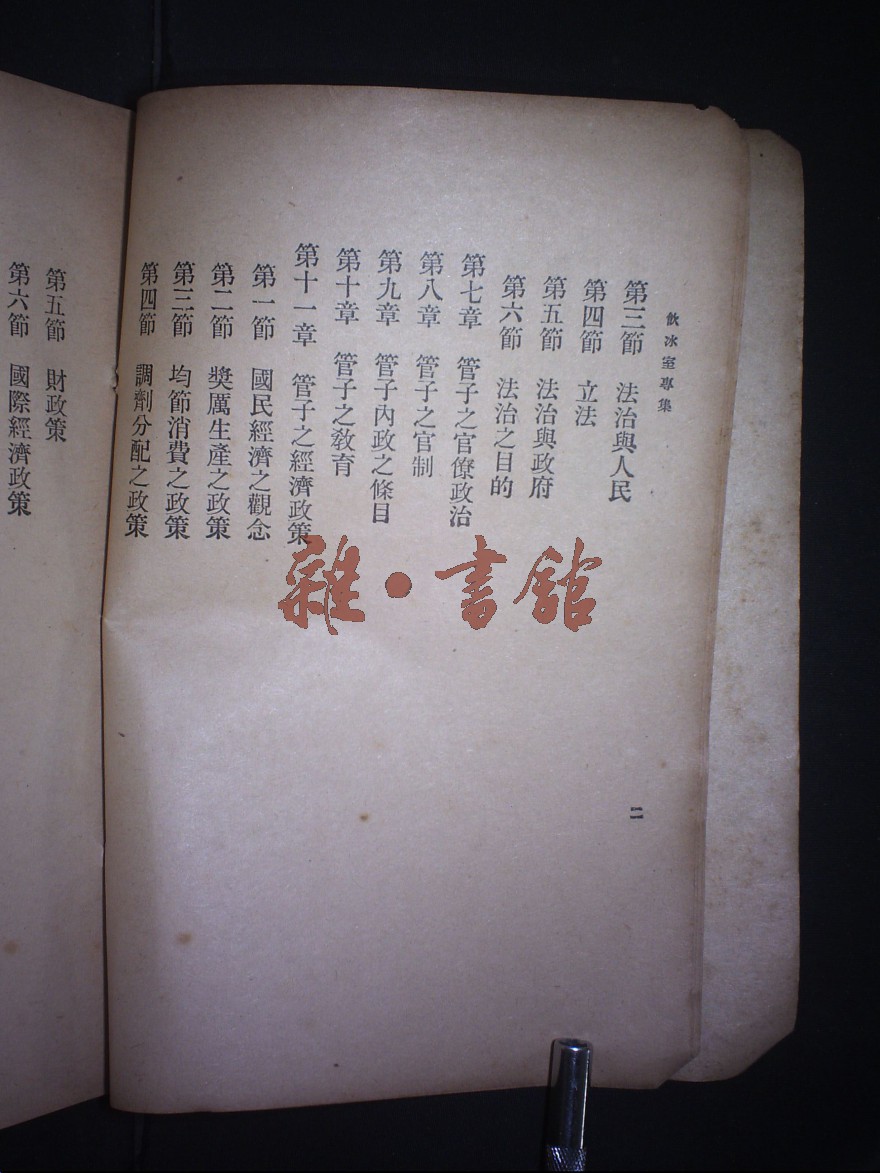 飲冰室專集
第三節 法治與人民
第四節 立法
第五節 法治與政府
第六節 法治之目的
第七章 管子之官僚政治
第八章 管子之官制
第九章 管子內政之條目
第十章 管子之教育
第十一章 管子之經濟政策
第一節 國民經濟之觀念
第二節 獎厲生產之政策
第三節 均節消費之政策
第四節 調劑分配之政策
二
第五節 財政策
第六節 國際經濟政策
雜·書館